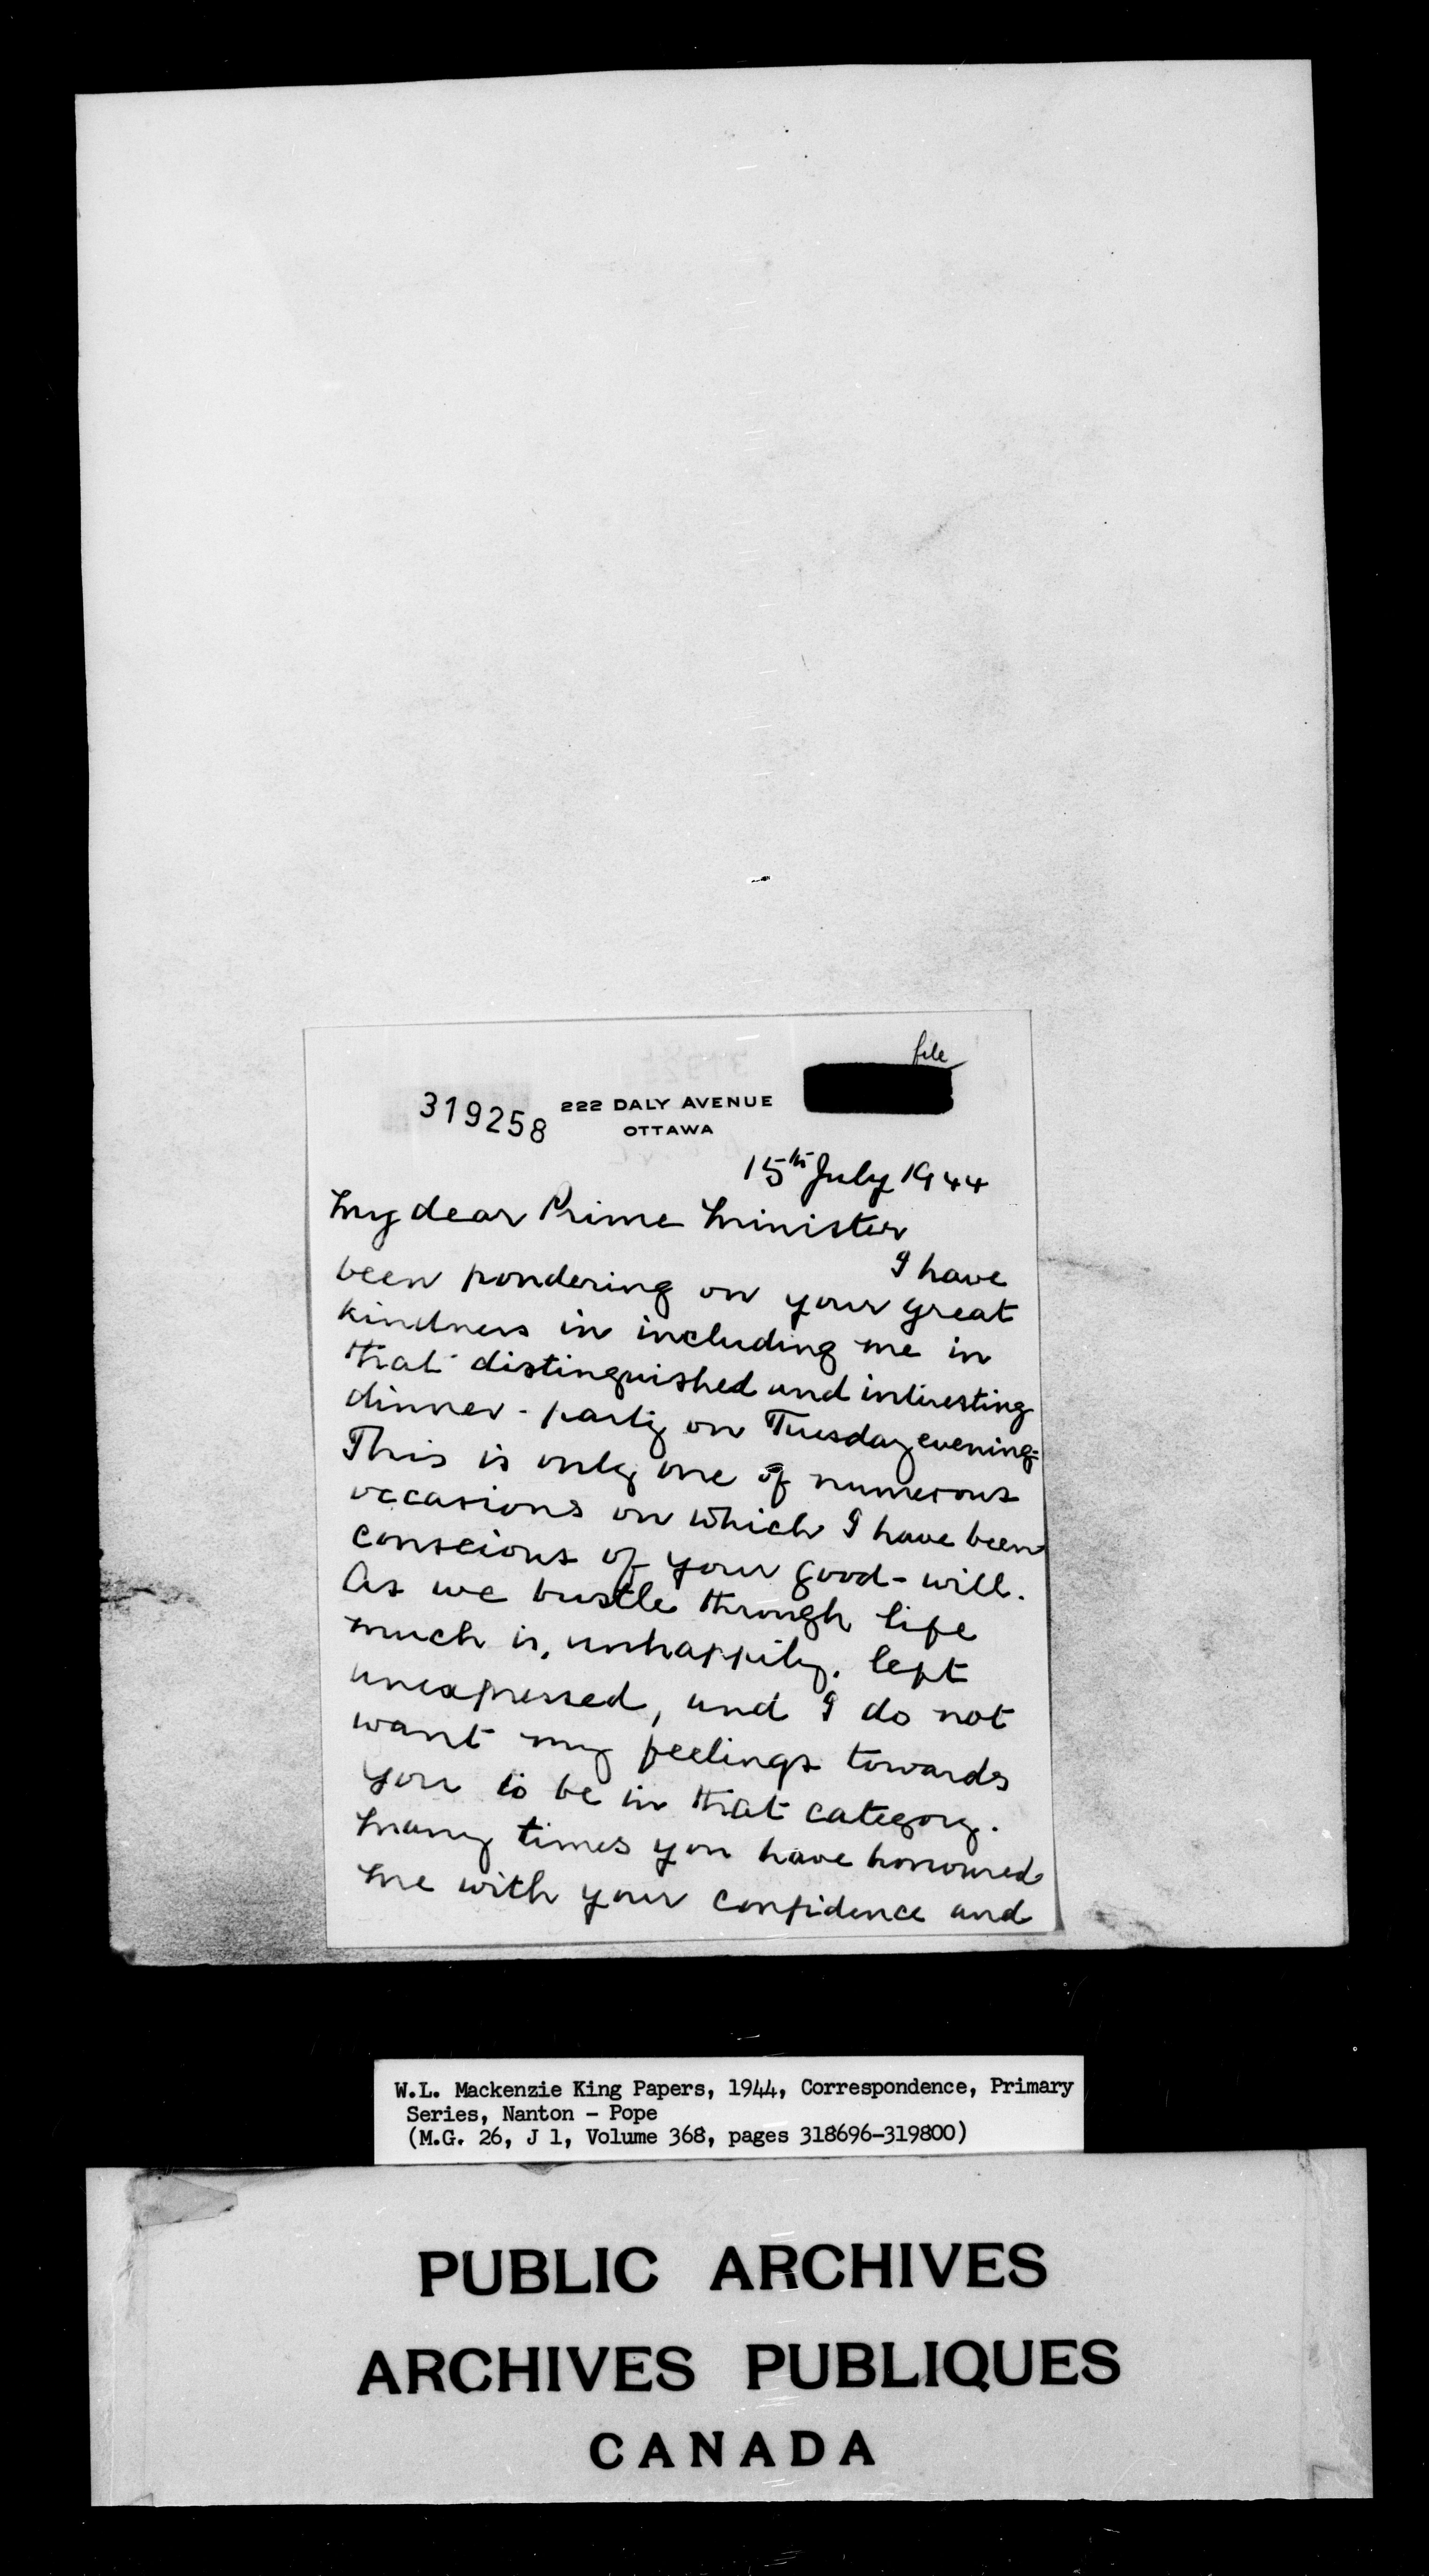 file
319258
222 DALY AVENUE
OTTAWA
15th July 1944
My dear Prime Minister
I have
been pondering on your great
kindness in including me in
that distinguished and interesting
dinner-party on Tuesday evening.
This is only one of numerous
occasions on which I have been
conscious of your good-will.
As we bustle through life
much is, unhappily, left
unexpressed, and I do not
want my feelings towards
you to be in that category.
Many times you have honoured
me with your confidence and
W.L. Mackenzie King Papers, 1944, Correspondence, Primary
Series, Nanton - Pope
(M.G. 26, J 1, Volume 368, pages 318696-319800)
PUBLIC ARCHIVES
ARCHIVES PUBLIQUES
CANADA